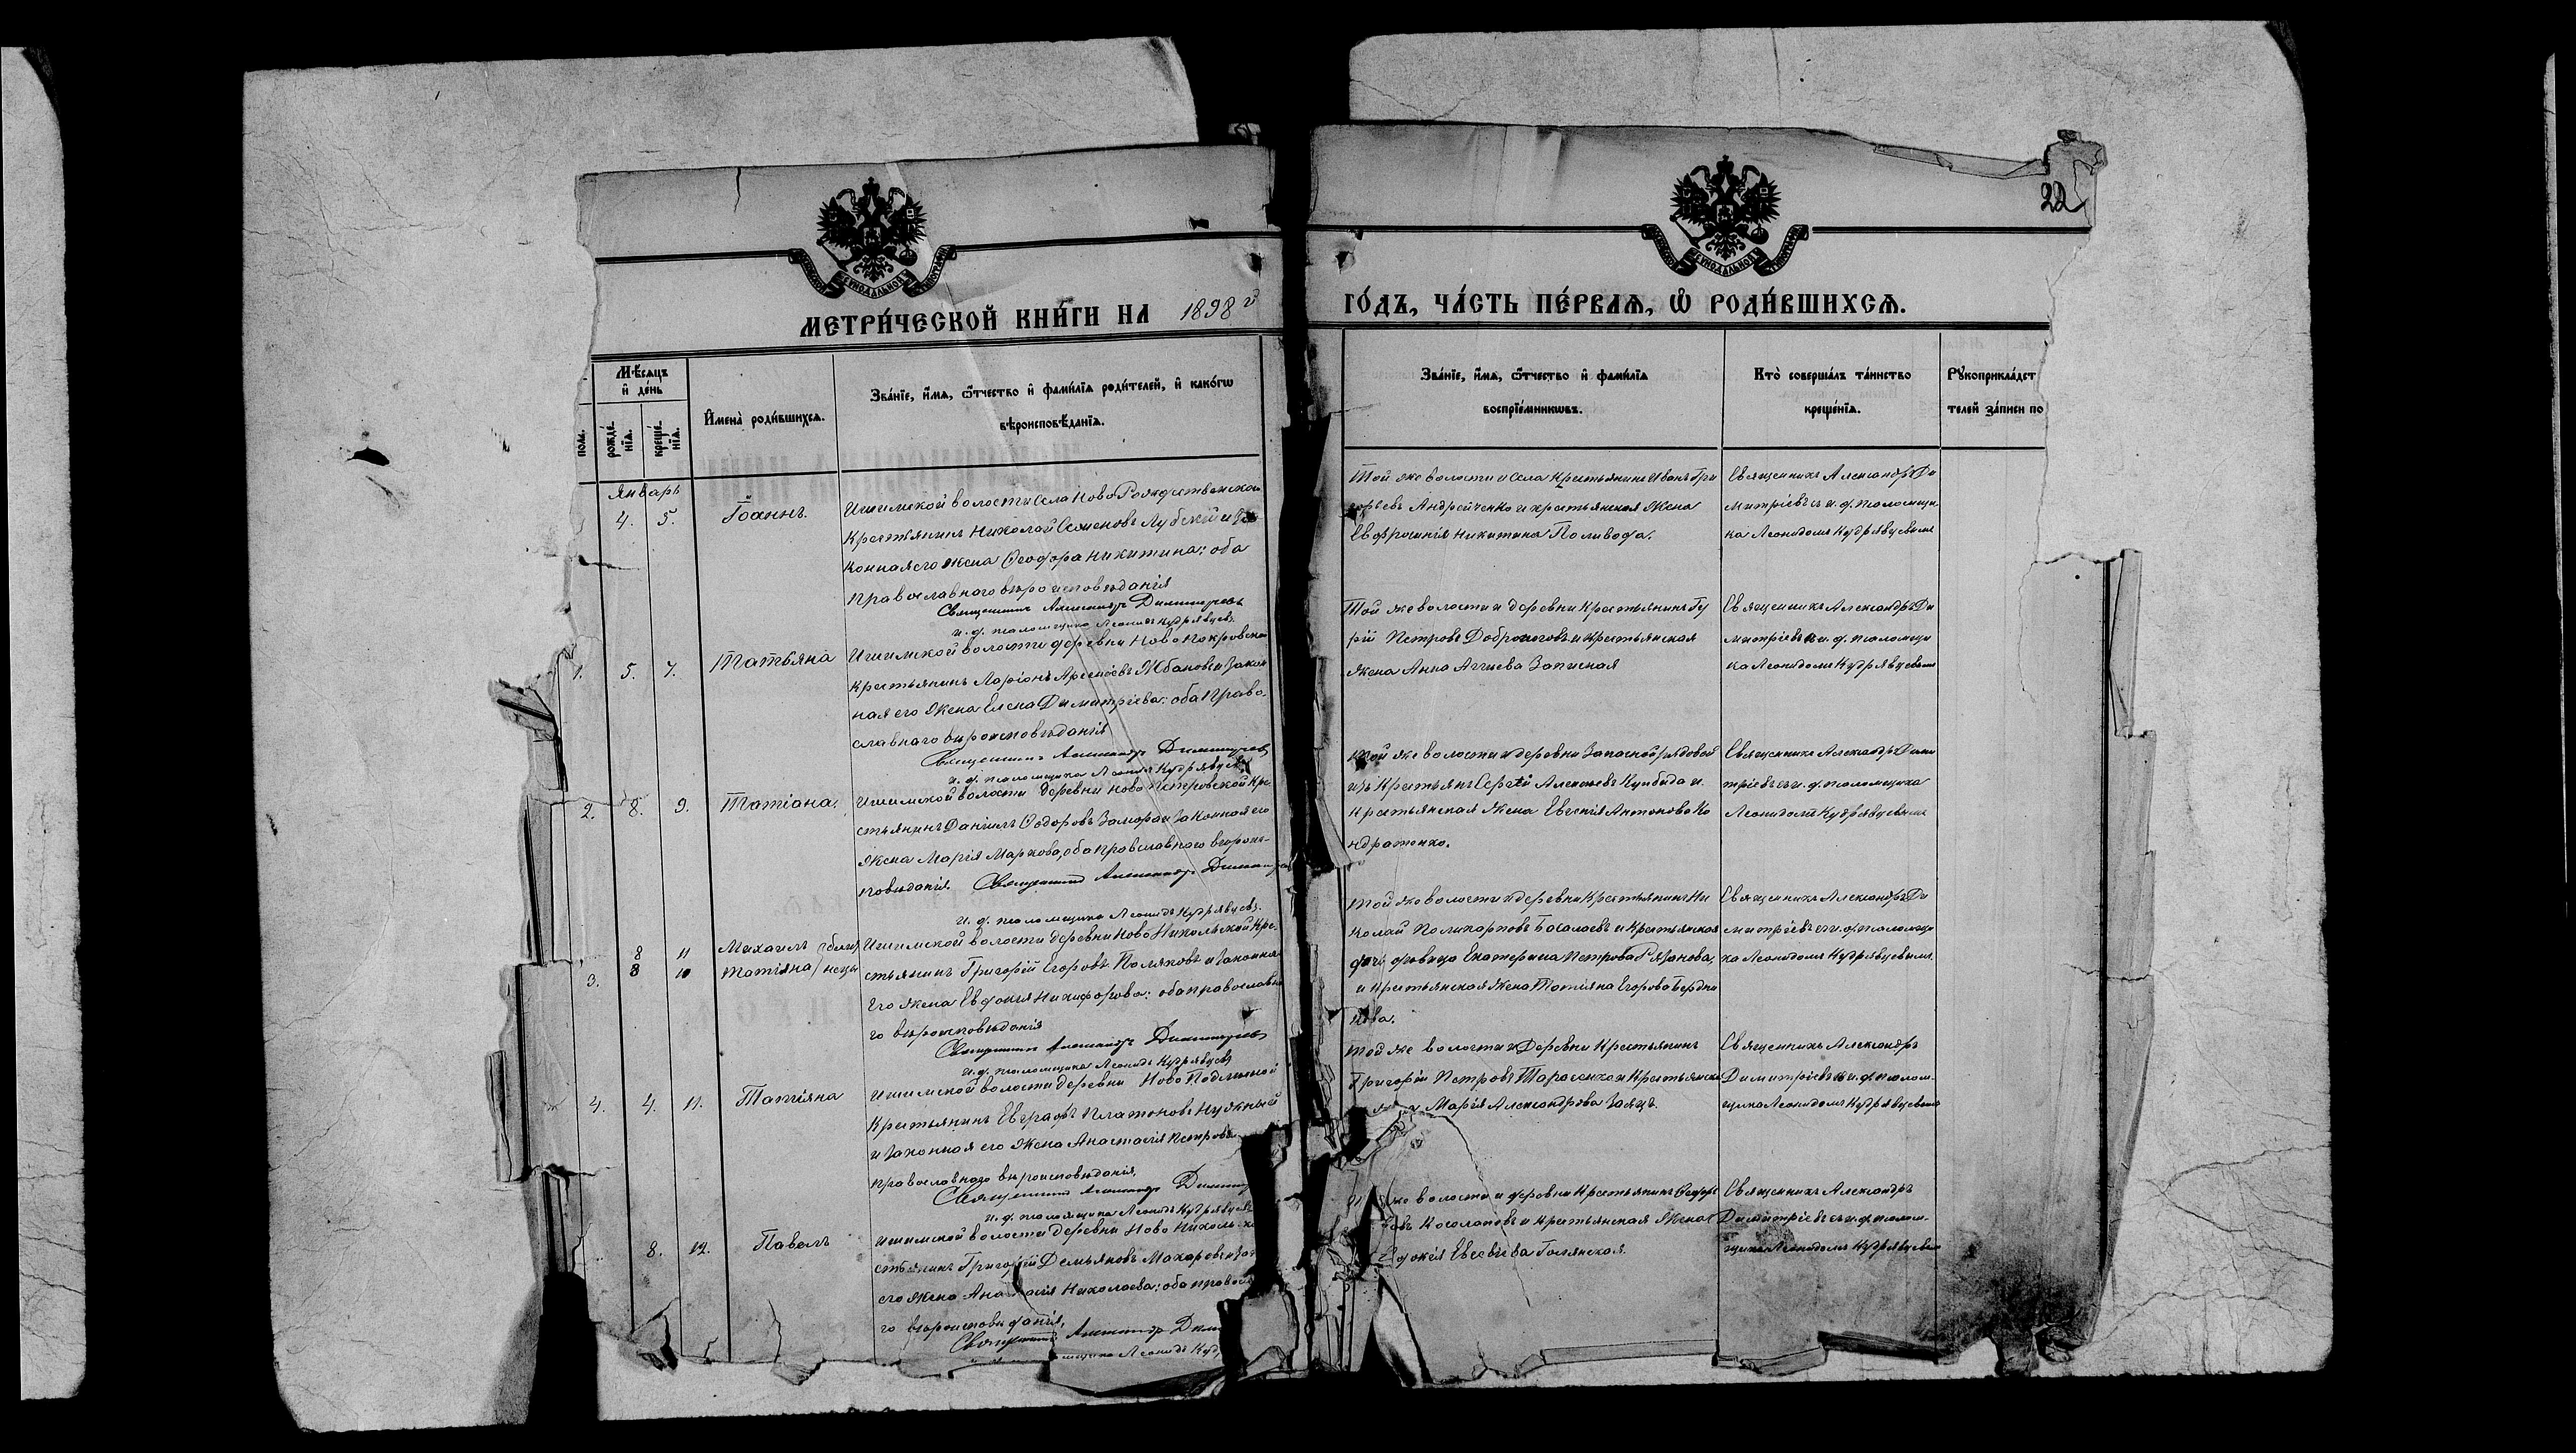 22
МЕТРИ́ЧЕСКОЙ КНИ́ГИ НА 1898 г
ГО́ДЪ, ЧА́СТЬ ПЕ́РВАЯ, Ѡ РОДИ́ВШИХСЯ.
Мѣсяцъ
и де́нь
рожде́-
нїя.
креще́-
нїя.
Имена̀ роди́вшихся.
Зва́нїе, и́мя, ѻ́тчество и фами́лїа роди́телей, и како́гѡ
вѣроисповѣ́данїя.
Зва́нїе, и́мя, ѻ́тчество и фами́лїа
воспрїе́мникѡвъ.
Кто̀ соверша́лъ та́инство
креще́нїя.
Рꙋкоприкла́дст
телей за́писи по
Январь
4. 5. Іоаннъ.
Ишимской волости села Ново Рождественскаго
Крестьянинъ Николай Семеновъ Лубскій и за
конная его жена Ѳеодора Никитина; оба
православнаго вѣроисповѣданія
Священникъ Александръ Димитріевъ
и. д. псаломщика Леонидъ Кудрявцевъ.
Той же волости и села Крестьянинъ Иванъ Гри
горьевъ Андрейченко и крестьянская жена
Евфросинія Никитина Поливода.
Священникъ Александръ Ди
митріевъ съ и. д. псаломщи
ка Леонидомъ Кудрявцевымъ
1. 5. 7. Татьяна
Ишимской волости деревни Ново Покровской
Крестьянинъ Ларіонъ Арсеніевъ Жбановъ и закон
ная его жена Елена Димитріева: оба право
славнаго вѣроисповѣданія
Священникъ Александръ Димитріевъ
и. д. псаломщика Леонидъ Кудрявцевъ
Той же волости и деревни Крестьянинъ Гу
рій Петровъ Доброноговъ и крестьянская
жена Анна Запасная
Священникъ Александръ Ди
митріевъ съ и. д. псаломщи
ка Леонидомъ Кудрявцевымъ
2. 8. 9. Татіана.
Ишимской волости деревни Ново Петровской Кре
стьянинъ Даніилъ Ѳеодоровъ Замора и законная его
жена Марія Маркова, оба православнаго вѣроис-
повѣданія. Священникъ Александръ Димитріевъ
и. д. псаломщика Леонидъ Кудрявцевъ.
Той же волости и деревни Запасной рядовой
изъ Крестьянъ Сергѣй Алексѣевъ Кунбида и
крестьянская жена Евгенія Антонова Ко
ндратенко.
Священникъ Александръ Дими
тріевъ съ и. д. псаломщика
Леонидомъ Кудрявцевымъ
8 11 Михаилъ близ
3. 8 10 Татіяна нецы
Ишимской волости деревни Ново Никольской Кре-
стьянинъ Григорій Егоровъ Поляковъ и законная
его жена Евдокія Никифорова: оба православна
го вѣроисповѣданія
Священникъ Александръ Димитріевъ
и. д. псаломщика Леонидъ Кудрявцевъ
Той же волости и деревни Крестьянинъ Ни
колай Поликарповъ Басалаевъ и крестьянская
дѣвица Екатерина Петрова Рязанова,
и крестьянская жена Татіяна Егорова Бердни
кова.
Священникъ Александръ Ди
митріевъ съ и. д. псаломщи
ка Леонидомъ Кудрявцевымъ
4. 4. 11. Татіяна
Ишимской волости деревни Ново
Крестьянинъ Евграфъ Платоновъ Нужный
и законная его жена Анастасія Петрова
православнаго вѣроисповѣданія,
Священникъ Александръ
и. д. псаломщика Леонидъ Кудрявцевъ
Той же волости и деревни Крестьянинъ
Григорій Петровъ Тарасенко и крестьянская
Марія Александрова Заяцъ.
Священникъ Александръ
Димитріевъ съ и. д. псалом-
щика Леонидомъ Кудрявцевымъ
8. 12. Павелъ
Ишимской волости деревни Ново
стьянинъ Григорій Демьяновъ Макаровъ и зак
его жена Анастасія Николаева; оба православ
го вѣроисповѣданія,
Священникъ Александръ
псаломщика Леонидъ
же волости и деревни Крестьянинъ Ѳеодоръ
Косолаповъ и крестьянская жена
Евдокія Евсевіева
Священникъ Александръ
Димитріевъ съ и. д. псалом-
щика Леонидомъ Кудрявцевымъ